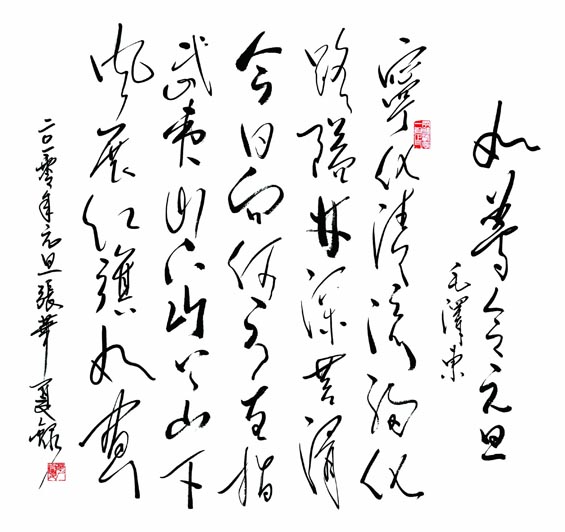 如夢令元旦
毛澤東
寧化清流歸化
路隘林深苔滑
今日向何方直指
武夷山下山下山下
風展紅旗如畫
二〇一零年元旦張華夏錄